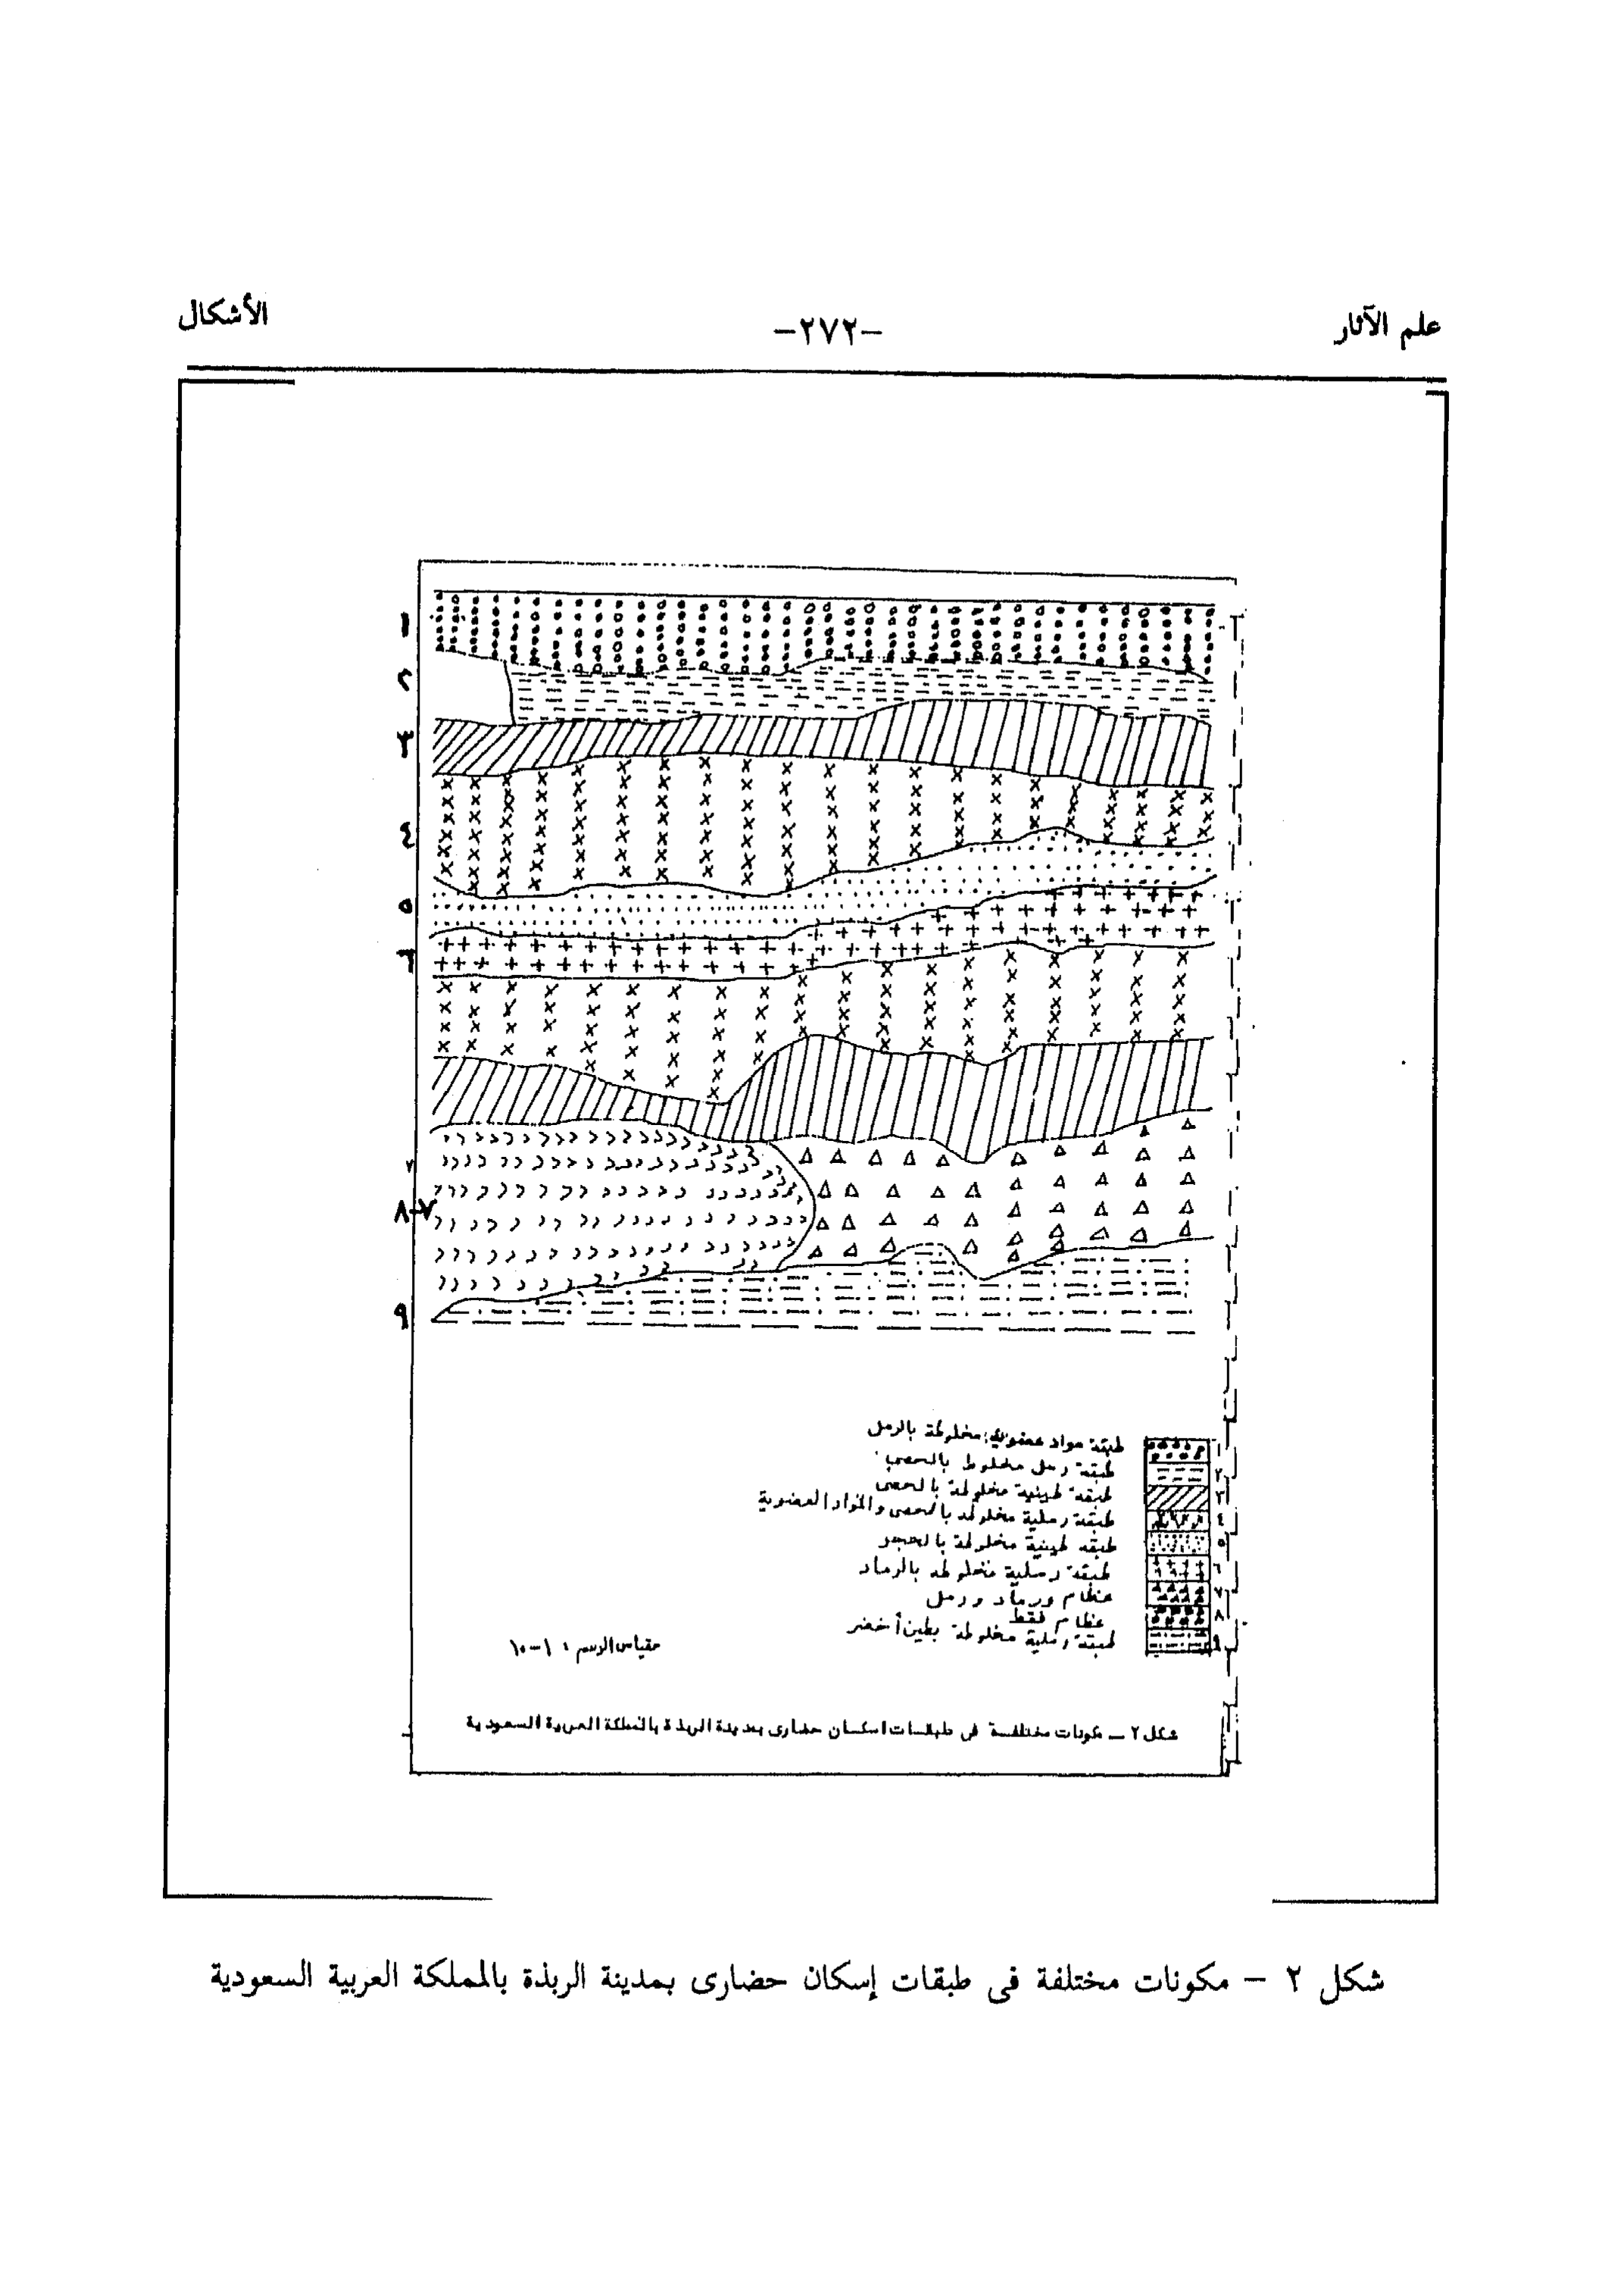 علم الآثار
-٢٧٢-
الأشكال
١
٢
٣
٤
٥
٦
٧
٧-٨
٩
١ طبقة مواد عضوية مخلوطة بالرمل
٢ طبقة رمل مخلوط بالحصى
٣ طبقة طينية مخلوطة بالحصى
٤ طبقة رملية مخلوطة بالحصى والمواد العضوية
٥ طبقة طينية مخلوطة بالحجر
٦ طبقة رملية مخلوطة بالرماد
٧ عظام ورماد ورمل
٨ عظام فقط
٩ طبقة رملية مخلوطة بطين أخضر
مقياس الرسم : ١-١٠
شكل ٢ – مكونات مختلفة فى طبقات اسكان حضارى بمدينة الربذة بالمملكة العربية السعودية
شكل ٢ – مكونات مختلفة فى طبقات إسكان حضارى بمدينة الربذة بالمملكة العربية السعودية